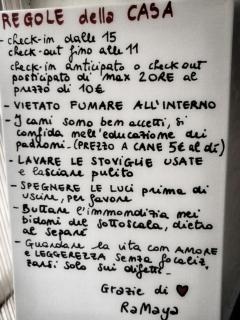 REGOLE della CASA
- check-in dalle 15
check-out fino alle 11
check-in anticipato o check out
posticipato di max 2 ORE al
prezzo di 10€
- VIETATO FUMARE ALL'INTERNO
- I cani sono bem accetti, si
confida nell'educazione dei
padroni. (PREZZO A CANE 5€ al dì)
- LAVARE LE STOVIGLIE USATE
e lasciare pulito
- SPEGNERE LE LUCI prima di
uscire, per favore
- Buttare l'immondizia nei
bidoni del sottoscala, dietro
al separé
- Guardare la vita con AMORE
e LEGGEREZZA senza focaliz_
zarsi solo sui difetti -
Grazie di ♥
RaMaya